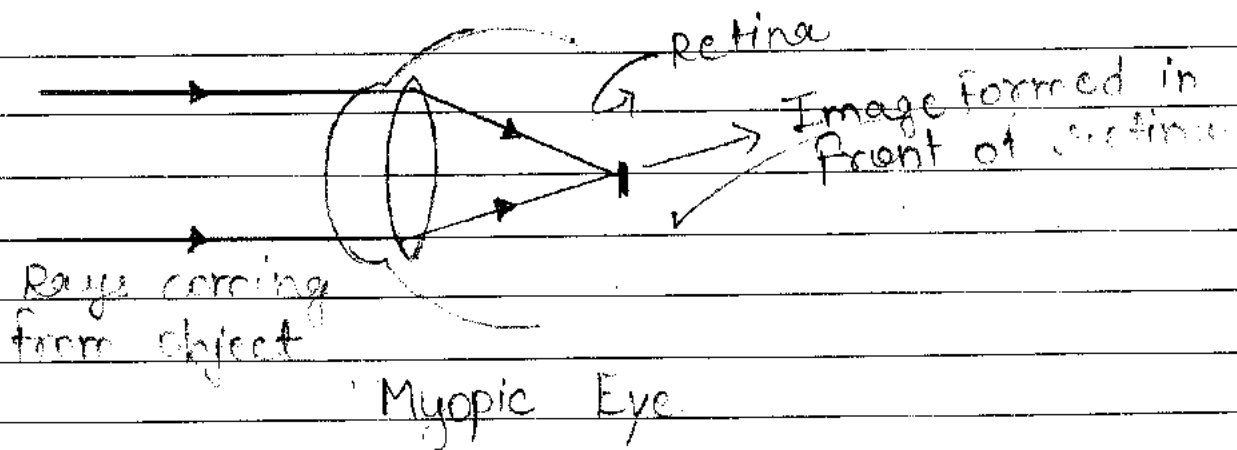 Retina
Image Formed in
front of retina
Rays coming
from object
Myopic Eye